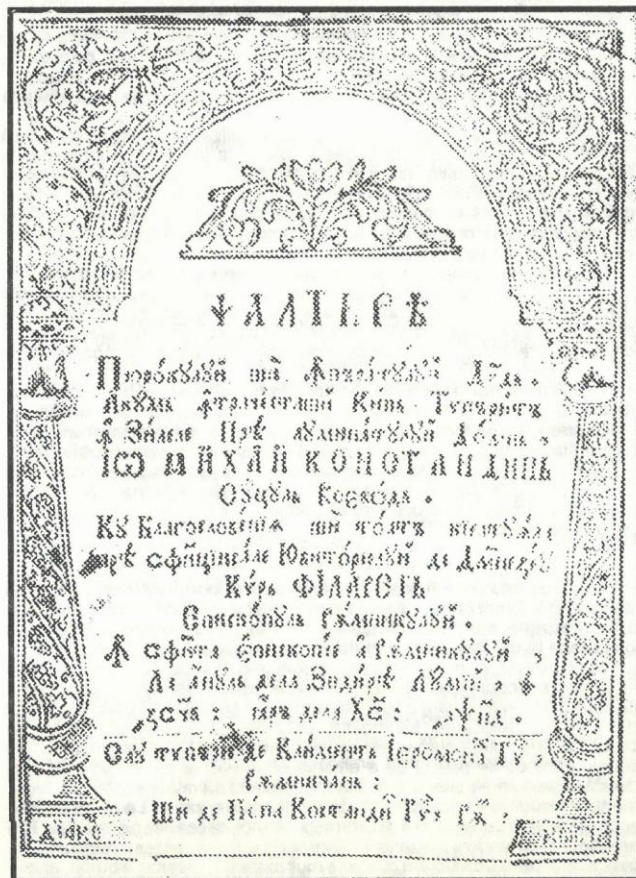 ѰАЛТИРѢ
Пророкꙋлꙋй ши Ꙟпъратꙋлꙋй Дв҃дъ.
Акꙋмъ ꙟтрачесташй Кипъ Типъритъ
Ꙟ Зилеле Прѣ лꙋминатꙋлꙋй Домнь,
ІѠ МИХАЙ КОНСТАНДИНЬ
Сꙋцꙋль Воевода.
Кꙋ Благословенїѧ ши тоатъ
прѣ сфинцїей сале Юбиторюлꙋй де Дмнезеꙋ
Кѵрь ФІЛАРЕТЬ
Епископꙋль Рѫмникꙋлꙋй.
Ꙟ сфѫнта Епископїе а Рѫмникꙋлꙋй,
Ла анꙋль дела Зидирѣ Лꙋмїи
҂зсч҃в: дела Хс҃: ҂аѱп҃д.
Саꙋ типъритъ де Климентъ Іеромонах Тѵ:
Рѫмничань:
Ши де Попа Костандин Тѵ: Рѫ: